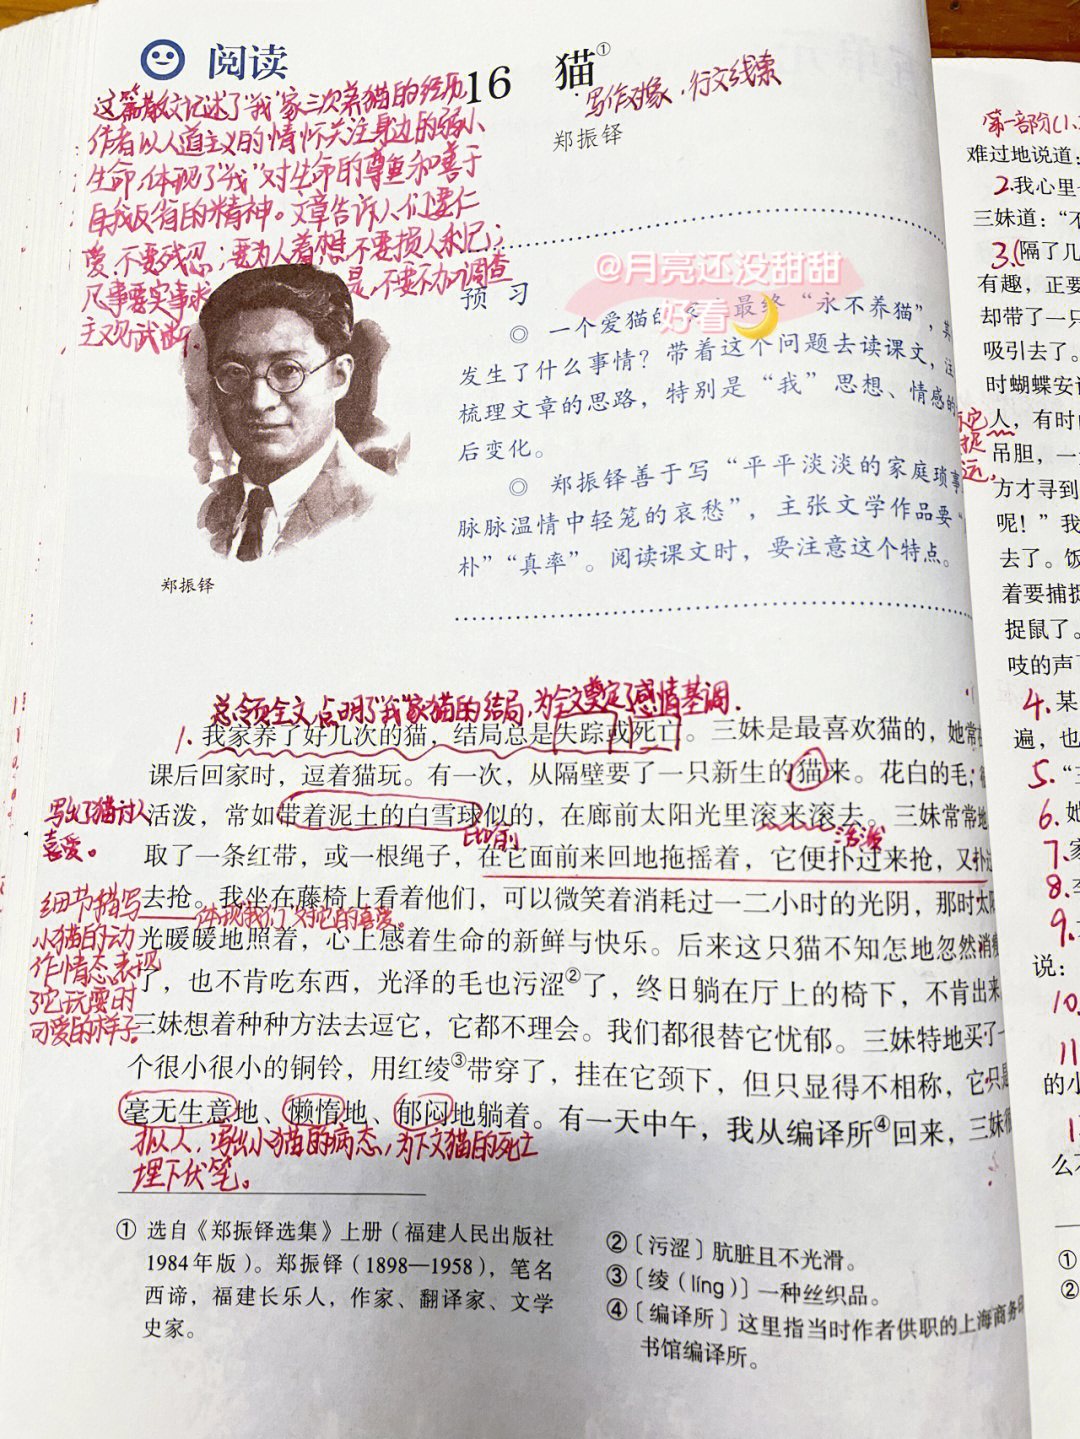 阅读
16 猫①
写作对象，行文线索
郑振铎
这篇散文记述了“我”家三次养猫的经历，
作者以人道主义的情怀关注身边的弱小
生命，体现了“我”对生命的尊重和善于
自我反省的精神。文章告诉人们要仁
爱、不要残忍；要为人着想，不要损人利己；
凡事要实事求是，不要不加调查
主观武断。
郑振铎
@月亮还没甜甜
好看🌙
预 习
◎ 一个爱猫的 最终“永不养猫”，其
发生了什么事情？带着这个问题去读课文，注
梳理文章的思路，特别是“我”思想、情感的
后变化。
◎ 郑振铎善于写“平平淡淡的家庭琐事
脉脉温情中轻笼的哀愁”，主张文学作品要“
朴”“真率”。阅读课文时，要注意这个特点。
总领全文，点明了“我”家猫的结局，为全文奠定了感情基调.
1. 我家养了好几次的猫，结局总是失踪或死亡。三妹是最喜欢猫的，她常在
课后回家时，逗着猫玩。有一次，从隔壁要了一只新生的猫来。花白的毛，
活泼，常如带着泥土的白雪球似的，在廊前太阳光里滚来滚去。三妹常常地
写出了猫讨人
喜爱。
比喻
活泼
取了一条红带，或一根绳子，在它面前来回地拖摇着，它便扑过来抢，又扑过
去抢。我坐在藤椅上看着他们，可以微笑着消耗过一二小时的光阴，那时太阳
体现我们对它的喜爱。
光暖暖地照着，心上感着生命的新鲜与快乐。后来这只猫不知怎地忽然消瘦
了，也不肯吃东西，光泽的毛也污涩②了，终日躺在厅上的椅下，不肯出来
三妹想着种种方法去逗它，它都不理会。我们都很替它忧郁。三妹特地买了一
个很小很小的铜铃，用红绫③带穿了，挂在它颈下，但只显得不相称，它只是
毫无生意地、懒惰地、郁闷地躺着。有一天中午，我从编译所④回来，三妹很
细节描写
小猫的动
作情态，表现
了它玩耍时
可爱的样子。
拟人，写出小猫的病态，为下文猫的死亡
埋下伏笔。
① 选自《郑振铎选集》上册（福建人民出版社
1984年版）。郑振铎（1898—1958），笔名
西谛，福建长乐人，作家、翻译家、文学
史家。
②〔污涩〕肮脏且不光滑。
③〔绫（líng）〕一种丝织品。
④〔编译所〕这里指当时作者供职的上海商务印
书馆编译所。
第一部分(1、
难过地说道：
2.我心里
三妹道：“不
3.(隔了几
有趣，正要
却带了一只
吸引去了。
时蝴蝶安
人，有时
吊胆，一
方才寻到
呢！”我
去了。饭
着要捕捉
捉鼠了。
吱的声
4.某
遍，也
5.“三
6.她
7.家
8.李
9.
说：
10.
11
的小
1
么不
①
②